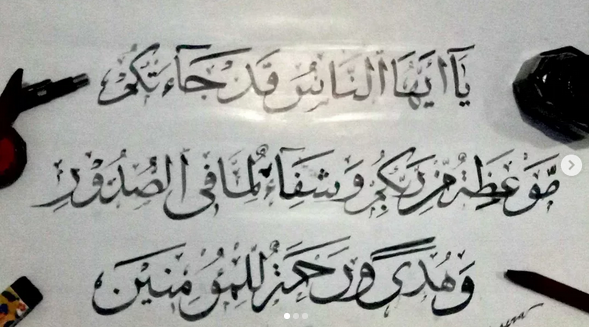 يَآ اَيُّهَا النَّاسُ قَدْ جَآءَتْكُمْ
مَّوْعِظَةٌ مِّنْ رَبِّكُمْ وَشِفَآءٌ لِّمَا فِى الصُّدُوْرِ
وَهُدًى وَّرَحْمَةٌ لِّلْمُؤْمِنِيْنَ